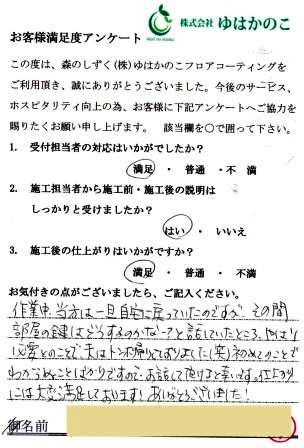 株式会社 ゆはかのこ
Mori no shizuku
お客様満足度アンケート
この度は、森のしずく(株)ゆはかのこフロアコーティングを
ご利用頂き、誠にありがとうございました。今後のサービス、
ホスピタリティ向上の為、お客様に下記アンケートへご協力を
賜りたくお願い申し上げます。 該当欄を○で囲って下さい。
1. 受付担当者の対応はいかがでしたか？
満足 ・ 普通 ・ 不 満
2. 施工担当者から施工前・施工後の説明は
しっかりと受けましたか？
はい ・ いいえ
3. 施工後の仕上がりはいかがですか？
満足 ・ 普通 ・ 不満
お気付きの点がございましたら、ご記入ください。
作業中、当方は一旦自宅に戻っていたのですが、その間
部屋の鍵はどうするのかな～？と話していたところ、やはり
必要とのことで、夫はトンボ帰りしておりました(笑)初めてのことで
わからぬことばかりですので、お話して頂けると幸いです。仕上がり
には大変満足しております！ありがとうございました！
御名前